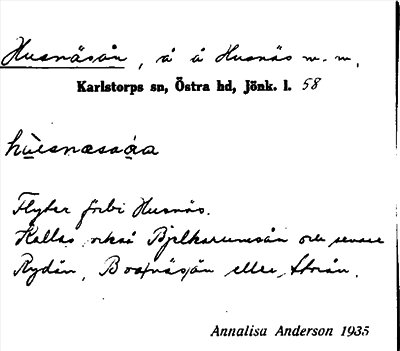 Husnäsån, å å Husnäs m. m.
Karlstorps sn, Östra hd, Jönk. l. 58
hùesnæsåa
Flyter förbi Husnäs.
Kallas också Bjelkarumsån och senare
Rydån, Bosnäsån eller Storån.
Annalisa Anderson 1935